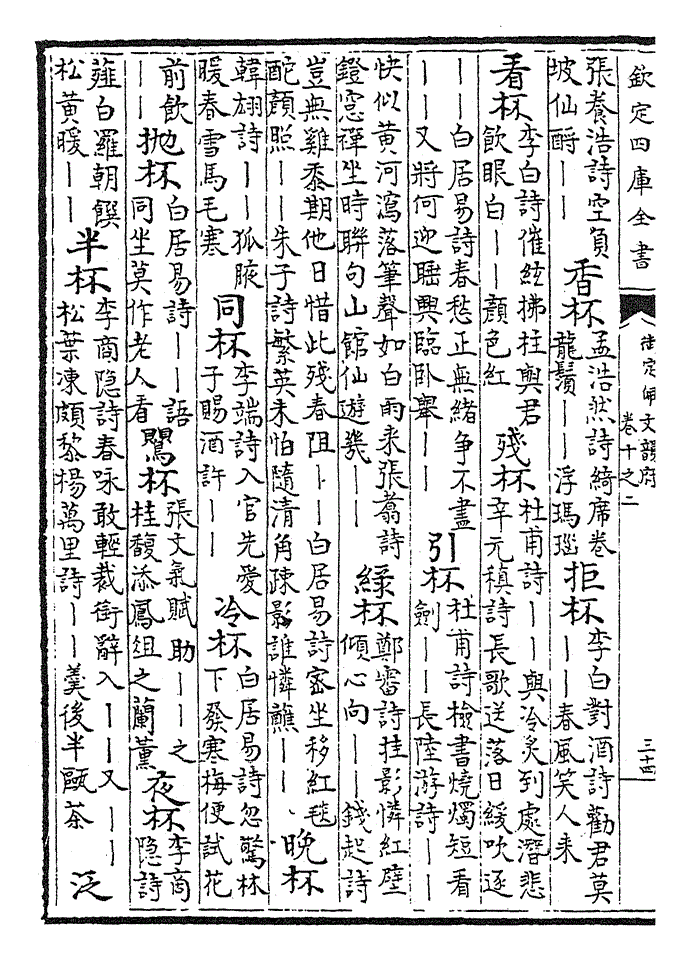 欽定四庫全書
御定佩文韻府
卷十之二
三十四
張養浩詩空負
坡仙酹——
香杯
孟浩然詩綺席卷
龍鬚——浮瑪瑙
拒杯
李白對酒詩勸君莫
——春風笑人来
看杯
李白詩催絃拂柱與君
飲眼白——顔色紅
殘杯
杜甫詩——與冷炙到處潛悲
辛元稹詩長歌送落日緩吹逐
——白居易詩春愁正無緒争不盡
——又將何迎睡興臨卧舉——
引杯
杜甫詩檢書燒燭短看
劍——長陸游詩——
快似黄河瀉落筆聲如白雨来張翥詩
鐙窓禪坐時聯句山館仙遊幾——
緑杯
鄭審詩挂影憐紅壁
傾心向——錢起詩
豈無雞黍期他日惜此殘春阻——白居易詩密坐移紅毯
酡顔照——朱子詩繁英未怕隨清角疎影誰憐蘸——
晚杯
韓翃詩——狐腋
暖春雪馬毛寒
同杯
李端詩入官先愛
子賜酒許——
冷杯
白居易詩忽驚林
下發寒梅便試花
前飲
——
抛杯
白居易詩——語
同坐莫作老人看
杯
張文氣賦助——之
桂馥添鳳俎之蘭薰
夜杯
李商
隐詩
薤白羅朝饌
松黄暖——
半杯
李商隐詩春咏敢輕裁銜辭入——又——
松葉凍頗黎楊萬里詩——羮後半甌茶
泛